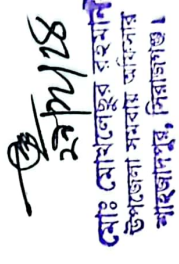 ২৯/৭/২৪
মোঃ মোখলেছুর রহমান
উপজেলা সমবায় অফিসার
শাহজাদপুর, সিরাজগঞ্জ।